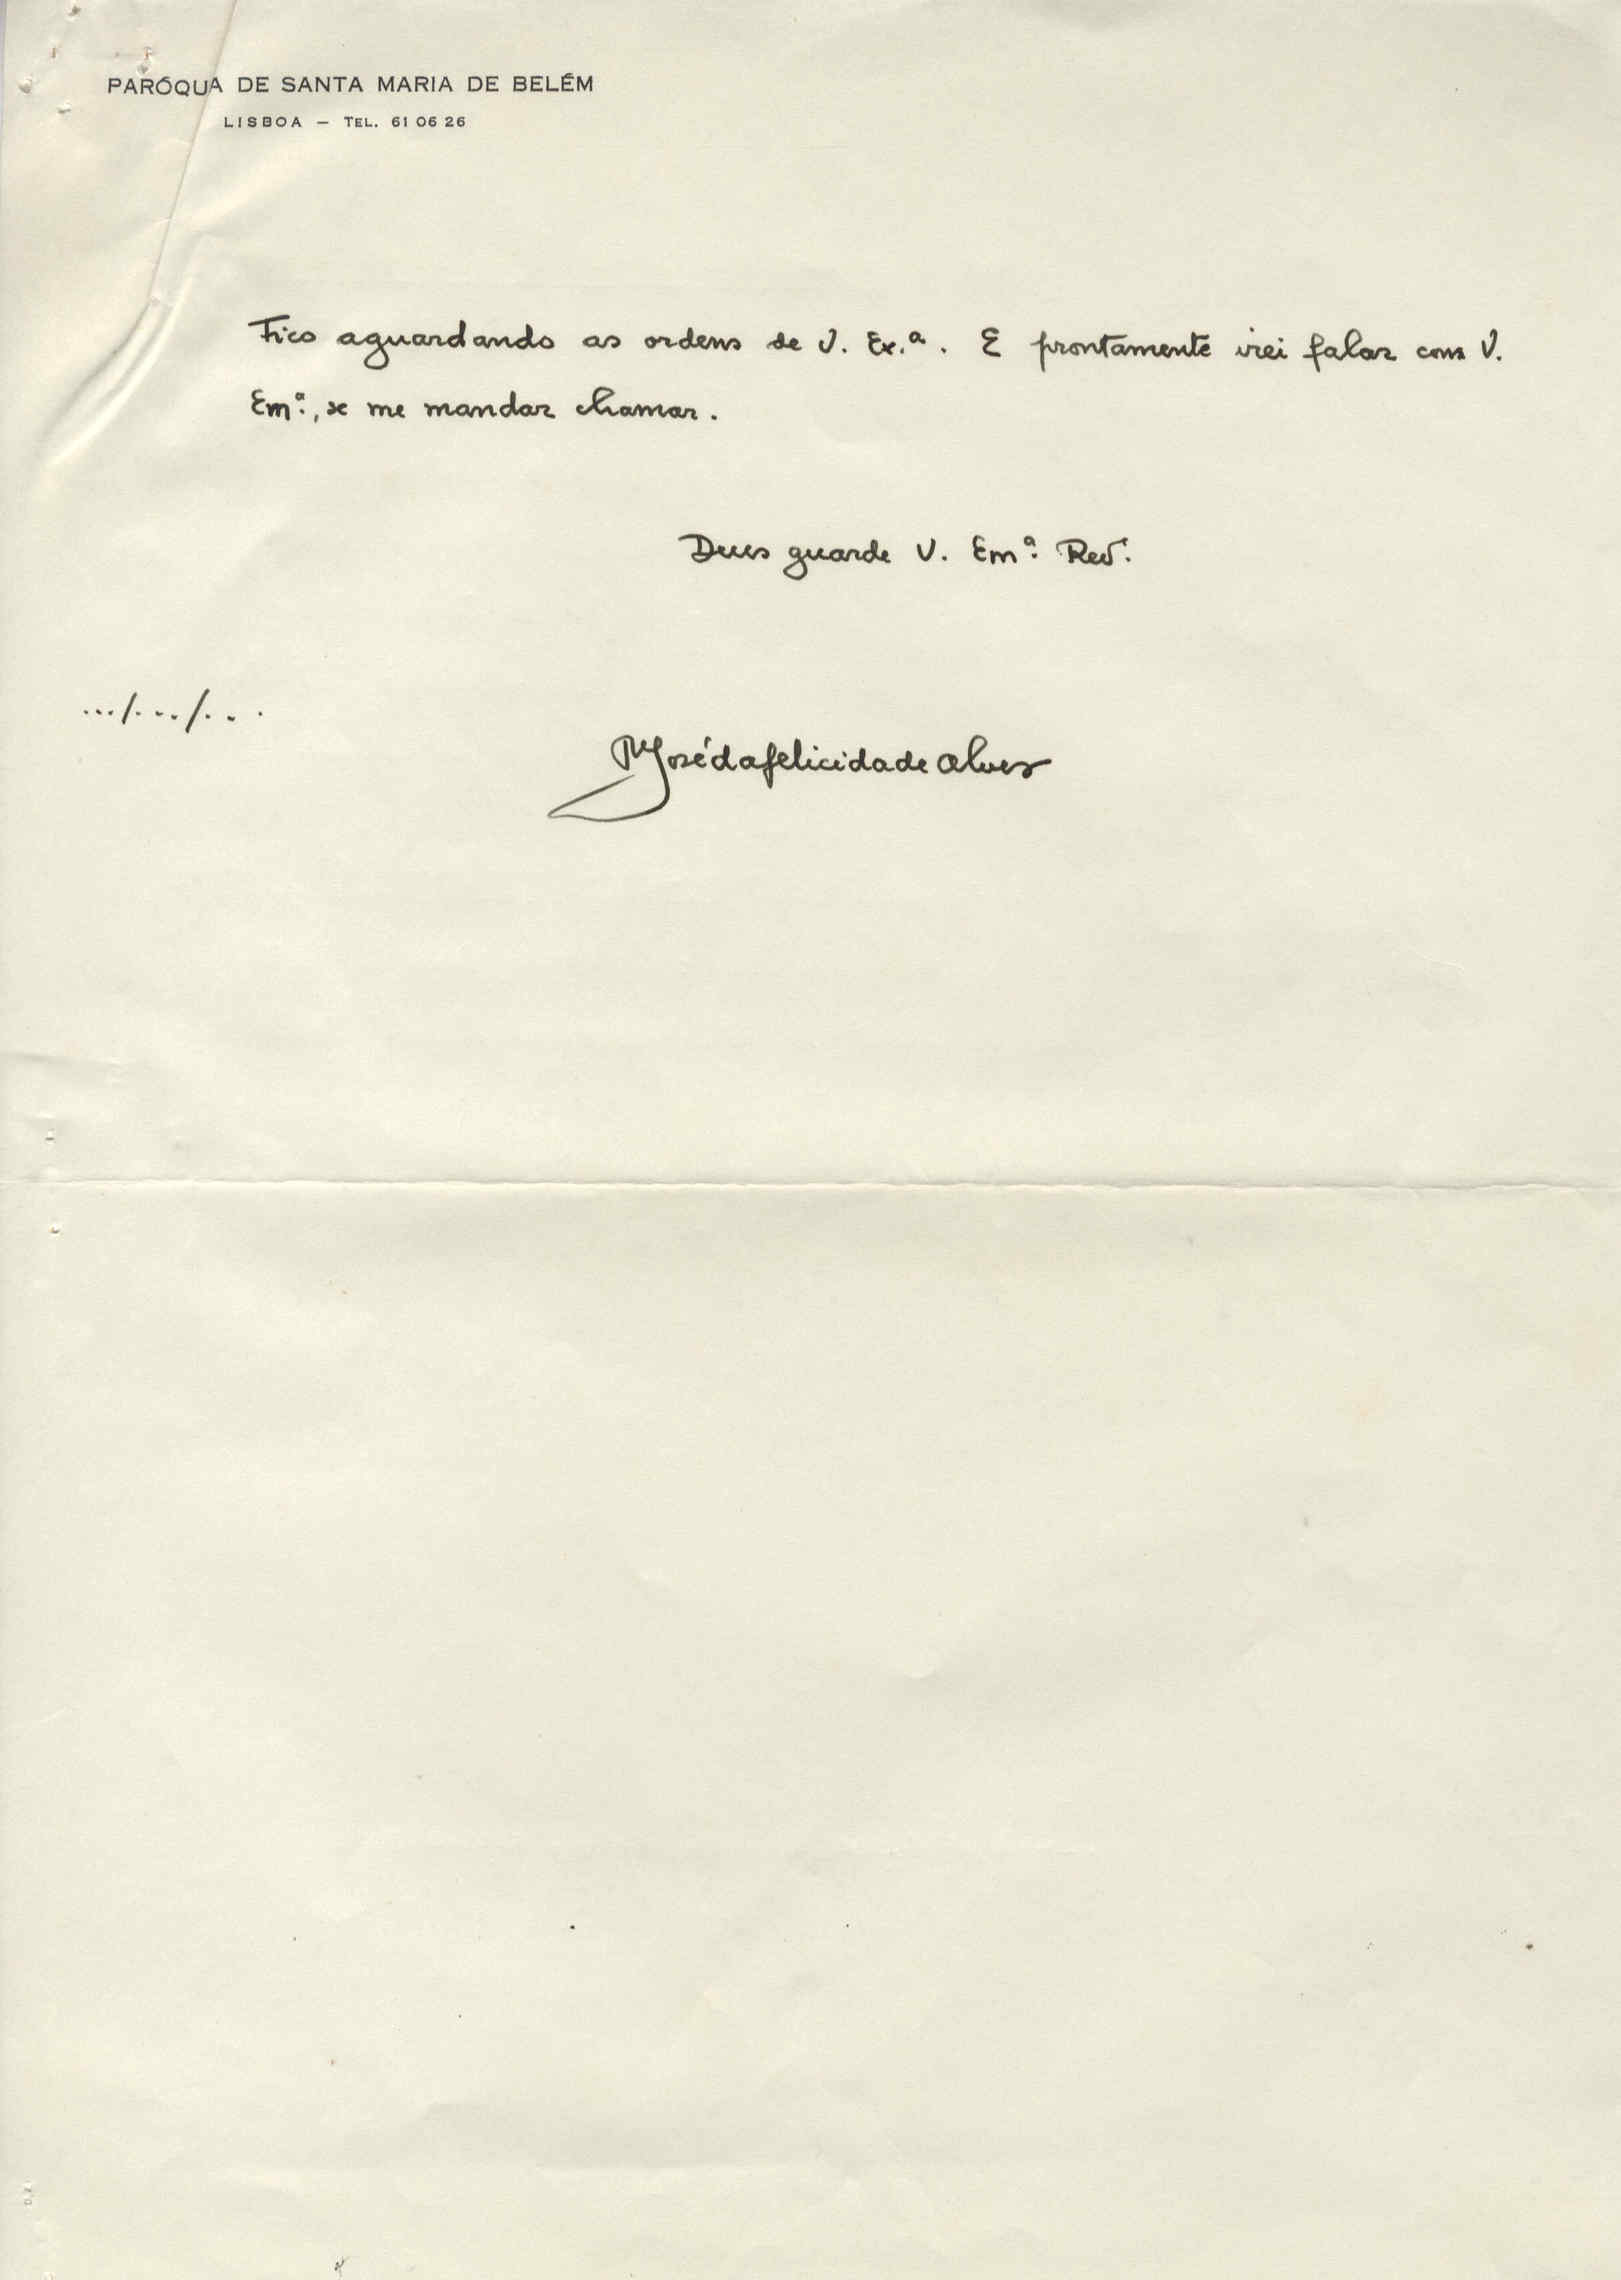 PARÓQUA DE SANTA MARIA DE BELÉM
LISBOA — TEL. 61 06 26
Fico aguardando as ordens de V. Ex.ª. E prontamente irei falar com V.
Emª., se me mandar chamar.
Deus guarde V. Emª. Revª.
.../.../...
P. José da felicidade Alves